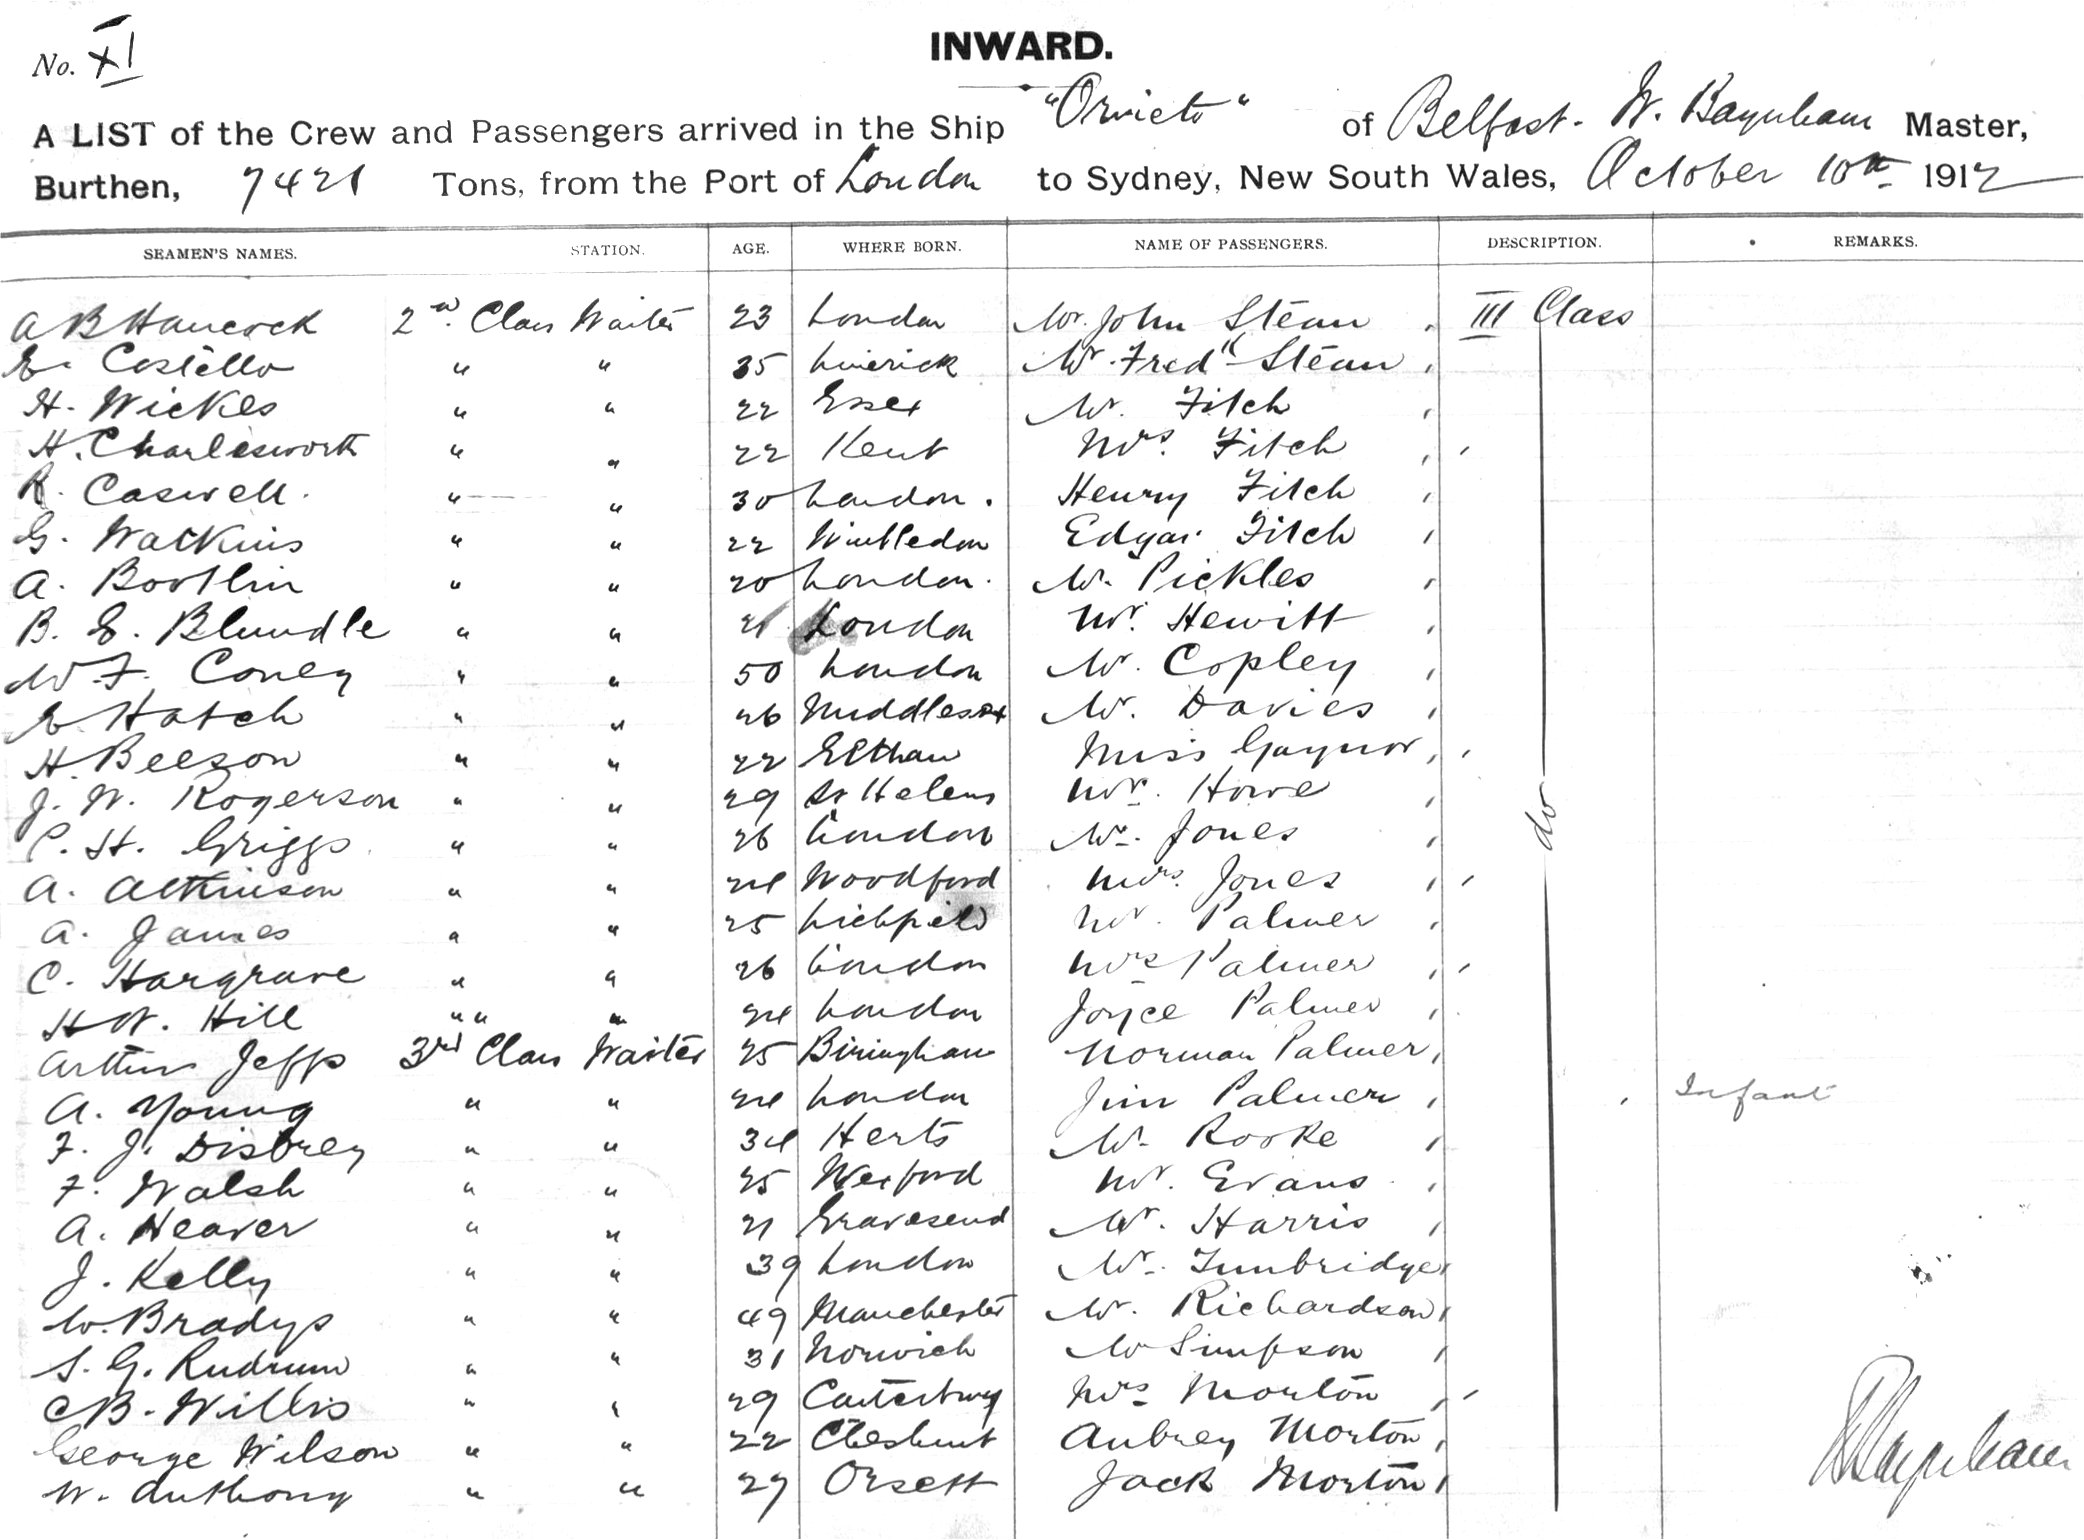 No. XI
INWARD.
A LIST of the Crew and Passengers arrived in the Ship "Orvieto" of Belfast. W. Baynham Master,
Burthen, 7421 Tons, from the Port of London to Sydney, New South Wales, October 10th 1912
SEAMEN'S NAMES. STATION. AGE. WHERE BORN. NAME OF PASSENGERS. DESCRIPTION. REMARKS.
A B Hancock 2nd Class Waiter 23 London Mr. John Stean , III Class
E. Costello " " 35 Limerick Mr. Fredk Stean ,
H. Wickes " " 22 Essex Mr. Fitch ,
H. Charlesworth " " 22 Kent Mrs. Fitch , ,
R. Caswell. " " 30 London. Henry Fitch ,
G. Watkins " " 22 Wimbledon Edgar Fitch ,
A. Bootlin " " 20 London. Mr. Pickles ,
B. E. Blundle " " 21 London Mr. Hewitt ,
W. F. Coney " " 50 London Mr. Copley ,
E Hatch " " 26 Middlesex Mr. Davies ,
H. Beeson " " 22 Eltham Miss Gaynor , ,
J. W. Rogerson " " 29 St Helens Mr. Howe ,
C. H. Griggs " " 26 London Mr. Jones , do
A. Atkinson " " 24 Woodford Mrs. Jones , ,
A. James " " 25 Lichfield Mr. Palmer ,
C. Hargrave " " 26 London Mrs Palmer , ,
H W. Hill " " " 24 London Joyce Palmer ,
Arthur Jepp 3rd Class Waiter 25 Birmingham Norman Palmer ,
A. Young " " 24 London Jim Palmer , , Infant
F. J. Disbrey " " 34 Herts Mr. Rooke ,
F. Walsh " " 25 Wexford Mr. Evans ,
A. Heaver " " 21 Gravesend Mr. Harris ,
J. Kelly " " 39 London Mr. Tunbridge ,
W. Bradys " " 49 Manchester Mr. Richardson ,
S. G. Rudrum " " 31 Norwich Mr Simpson ,
C B. Willis " " 29 Canterbury Mrs Morton , ,
George Wilson " " 22 Cheshunt Aubrey Morton ,
W. Anthony " " 27 Orsett Jack Morton ,
W Baynham